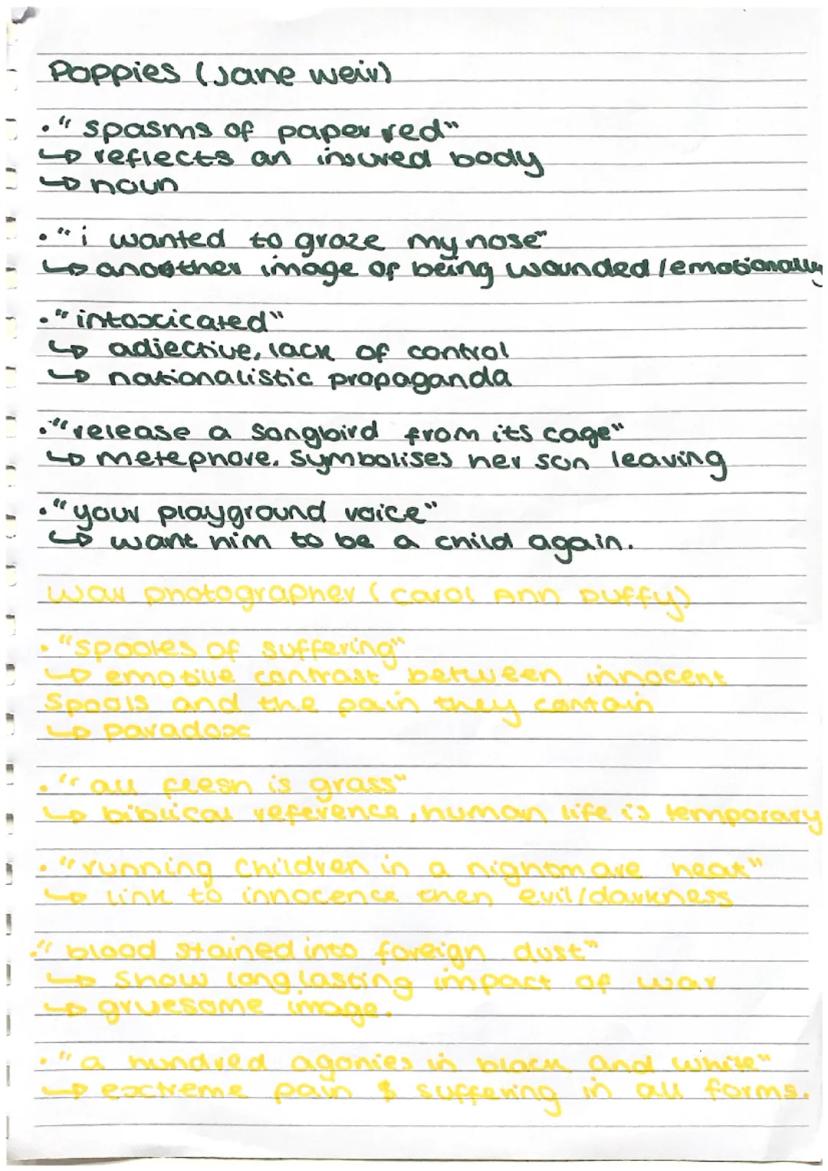 Poppies (Jane Weir)
• "spasms of paper red"
↳ reflects an insured body
↳ noun
• "i wanted to graze my nose"
↳ anoother image of being wounded/emotionally
• "intoxcicated"
↳ adjective, lack of control
↳ nationalistic propaganda
• "release a songbird from its cage"
↳ metephore. Symbolises her son leaving
• "your playground voice"
↳ want him to be a child again.
War photographer (Carol Ann Duffy)
• "spooles of suffering"
↳ emotive contrast between innocent
spools and the pain they contain
↳ paradox
• "all flesh is grass"
↳ biblical reference, human life is temporary
• "running children in a nightmare heat"
↳ link to innocence then evil/darkness
• "blood stained into foreign dust"
↳ Show long lasting impact of war
↳ gruesome image.
• "a hundred agonies in black and white"
↳ extreme pain & suffering in all forms.